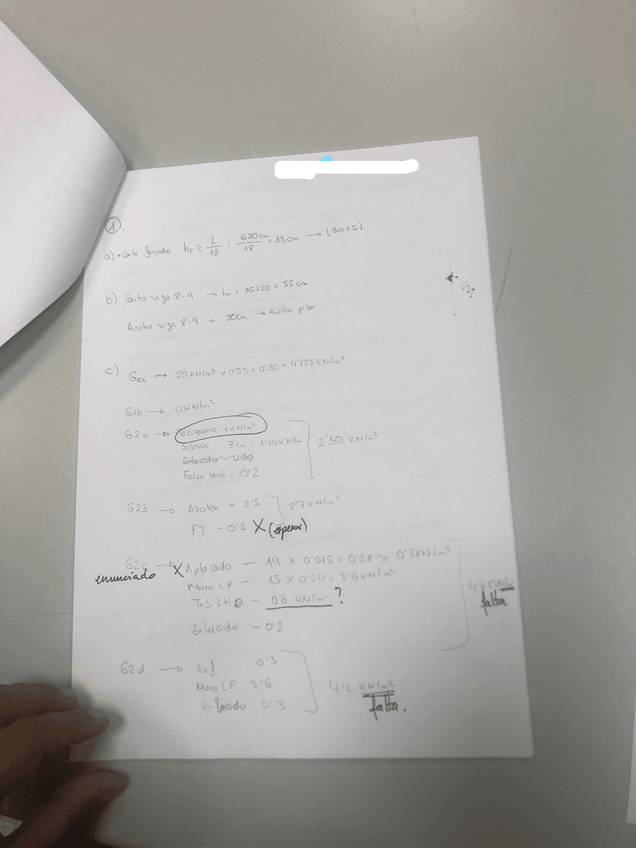 1
a) • Canto forjado hf ≥ L/18 = 630cm/18 = 35cm → (30+5)
b) Canto viga 8-9 → hv = 35+20 = 55cm
Ancho viga 8-9 → 30cm → Ancho pilar
c) G1a → 25KN/m³ x 0'55 x 0'30 = 4'125KN/m
G1b → 4KN/m²
G2a → Tabiquería 1KN/m²
Solería 7cm : 1'10KN/m
Falso tech. 0'2
2'30 KN/m²
G2b → Azotea - 2'5
FT - 0'2 X (espesor)
2'7KN/m²
G2c → X Aplacado - 19 x 0'015 = 0'28 ≈ 0'3KN/m²
enunciado
Muro LP - 15 x 0'24 = 3'6KN/m²
Tab LHD - 0'6 KN/m² ?
Enlucido - 0'2
KN/m²
falta
G2d → Enf 0'3
Muro LP 3'6
Enlucido 0'3
4'2 KN/m²
falta.